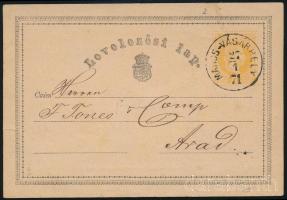 Levelezési lap.
MAROS-VÁSÁRHELY
71
Czím
Herrn
& Comp
Arad